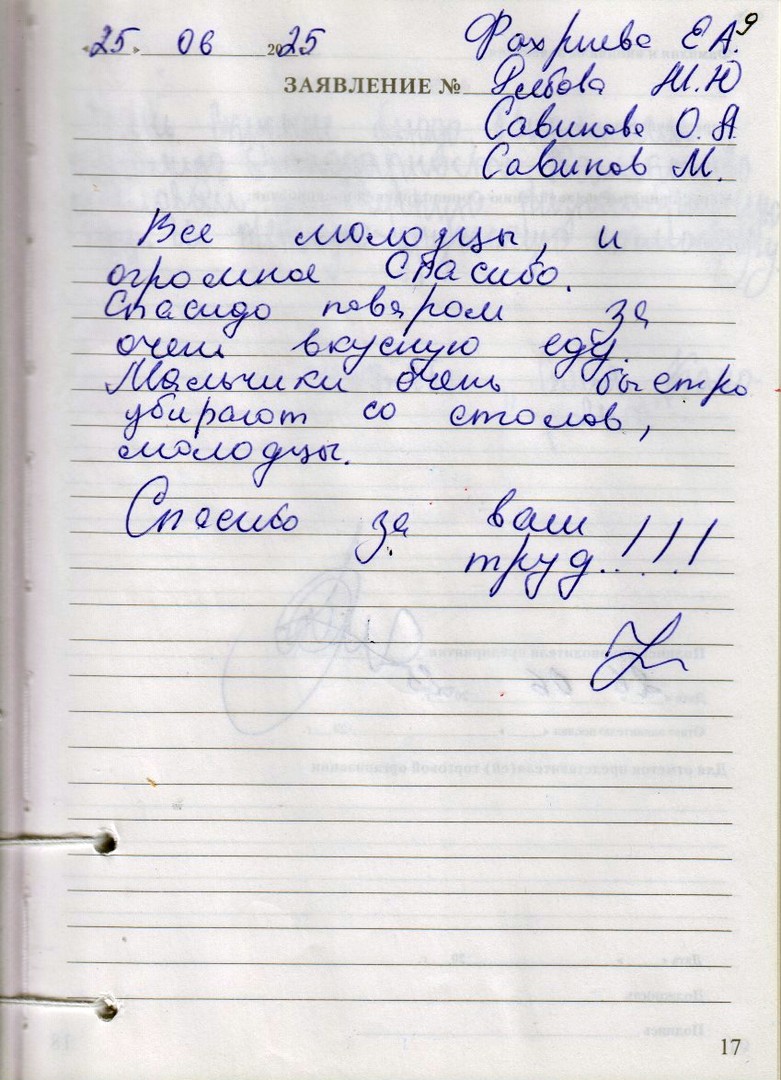 «25» 06 2025
Фахриева Е.А. 9
ЗАЯВЛЕНИЕ №
Ж.Ю
Савинова О.А.
Савинов М.
Все молодцы, и
огромное Спасибо.
Спасидо поваром за
очень вкусную еду.
Мальчики очень быстро
убирают со столов,
молодцы.
Спасибо за ваш
труд..!!!
17